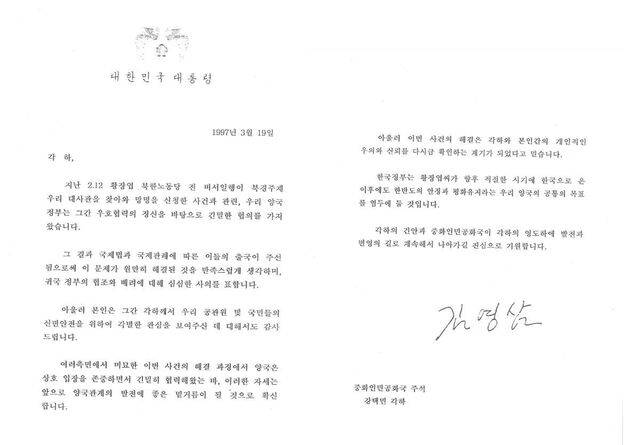 대한민국 대통령
1997년 3월 19일
각 하,
지난 2.12 황장엽 북한노동당 전 비서일행이 북경주재
우리 대사관을 찾아와 망명을 신청한 사건과 관련, 우리 양국
정부는 그간 우호협력의 정신을 바탕으로 긴밀한 협의를 가져
왔습니다.
그 결과 국제법과 국제관례에 따른 이들의 출국이 주선
됨으로써 이 문제가 원만히 해결된 것을 만족스럽게 생각하며,
귀국 정부의 협조와 배려에 대해 심심한 사의를 표합니다.
아울러 본인은 그간 각하께서 우리 공관원 및 국민들의
신변안전을 위하여 각별한 관심을 보여주신 데 대해서도 감사
드립니다.
여러측면에서 미묘한 이번 사건의 해결 과정에서 양국은
상호 입장을 존중하면서 긴밀히 협력해왔는 바, 이러한 자세는
앞으로 양국관계의 발전에 좋은 밑거름이 될 것으로 확신
합니다.
아울러 이번 사건의 해결은 각하와 본인간의 개인적인
우의와 신뢰를 다시금 확인하는 계기가 되었다고 믿습니다.
한국정부는 황장엽씨가 향후 적절한 시기에 한국으로 온
이후에도 한반도의 안정과 평화유지라는 우리 양국의 공통의 목표
를 염두에 둘 것입니다.
각하의 건안과 중화인민공화국이 각하의 영도하에 발전과
번영의 길로 계속해서 나아가길 진심으로 기원합니다.
김영삼
중화인민공화국 주석
강택민 각하